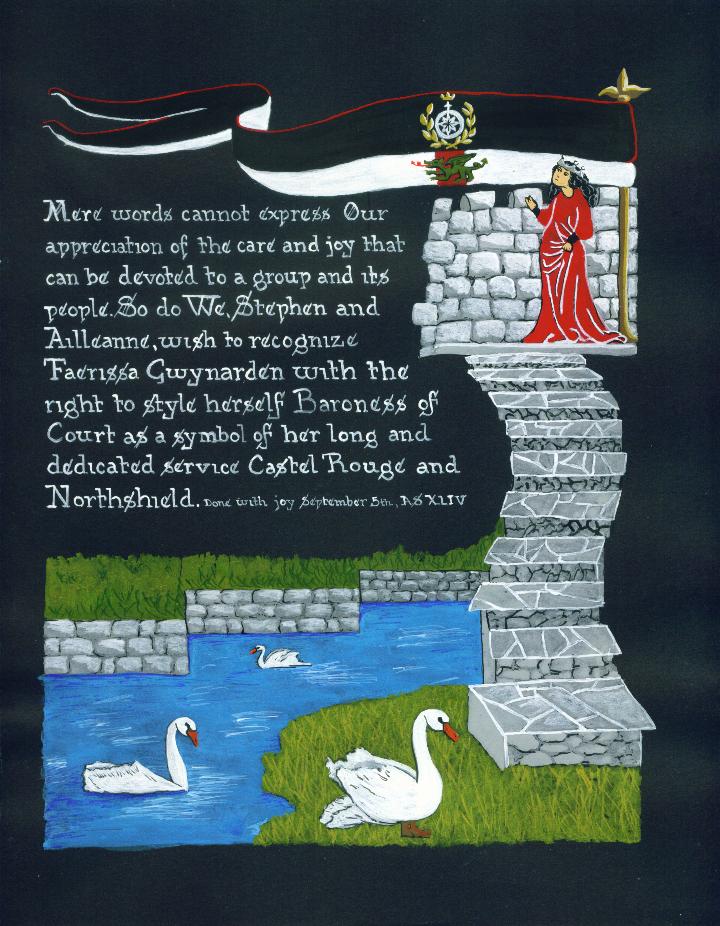 Mere words cannot express Our
appreciation of the care and joy that
can be devoted to a group and its
people. So do We, Stephen and
Ailleanne, wish to recognize
Faerissa Gwynarden with the
right to style herself Baroness of
Court as a symbol of her long and
dedicated service Castel Rouge and
Northshield. Done with joy September 5th, AS XLIV